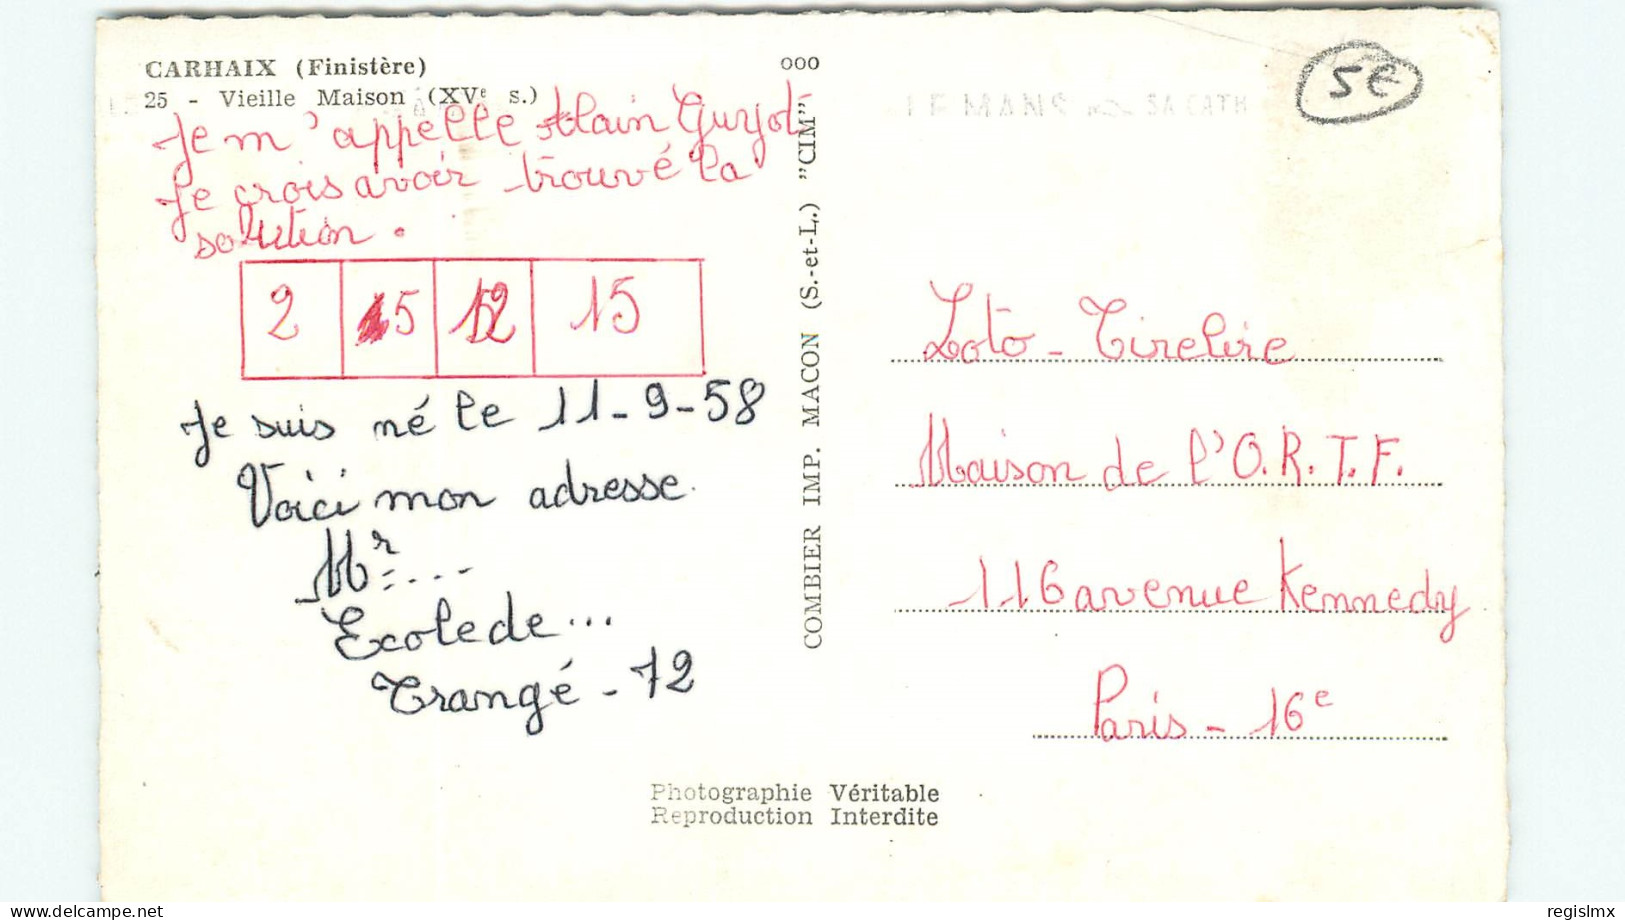 CARHAIX (Finistère)
25 - Vieille Maison (XVe s.)
Je m'appelle Alain Guyot
Je crois avoir trouvé la
solution.
2 5 12 15
Je suis né le 11-9-58
Voici mon adresse.
Mr ...
Ecole de ...
Trangé - 72
COMBIER IMP. MACON (S.-et-L.) "CIM"
000
LE MANS SA CATH
5€
Loto - Tirelire
Maison de l'O.R.T.F.
116 avenue Kennedy
Paris - 16e
Photographie Véritable
Reproduction Interdite
delcampe.net
regislmx